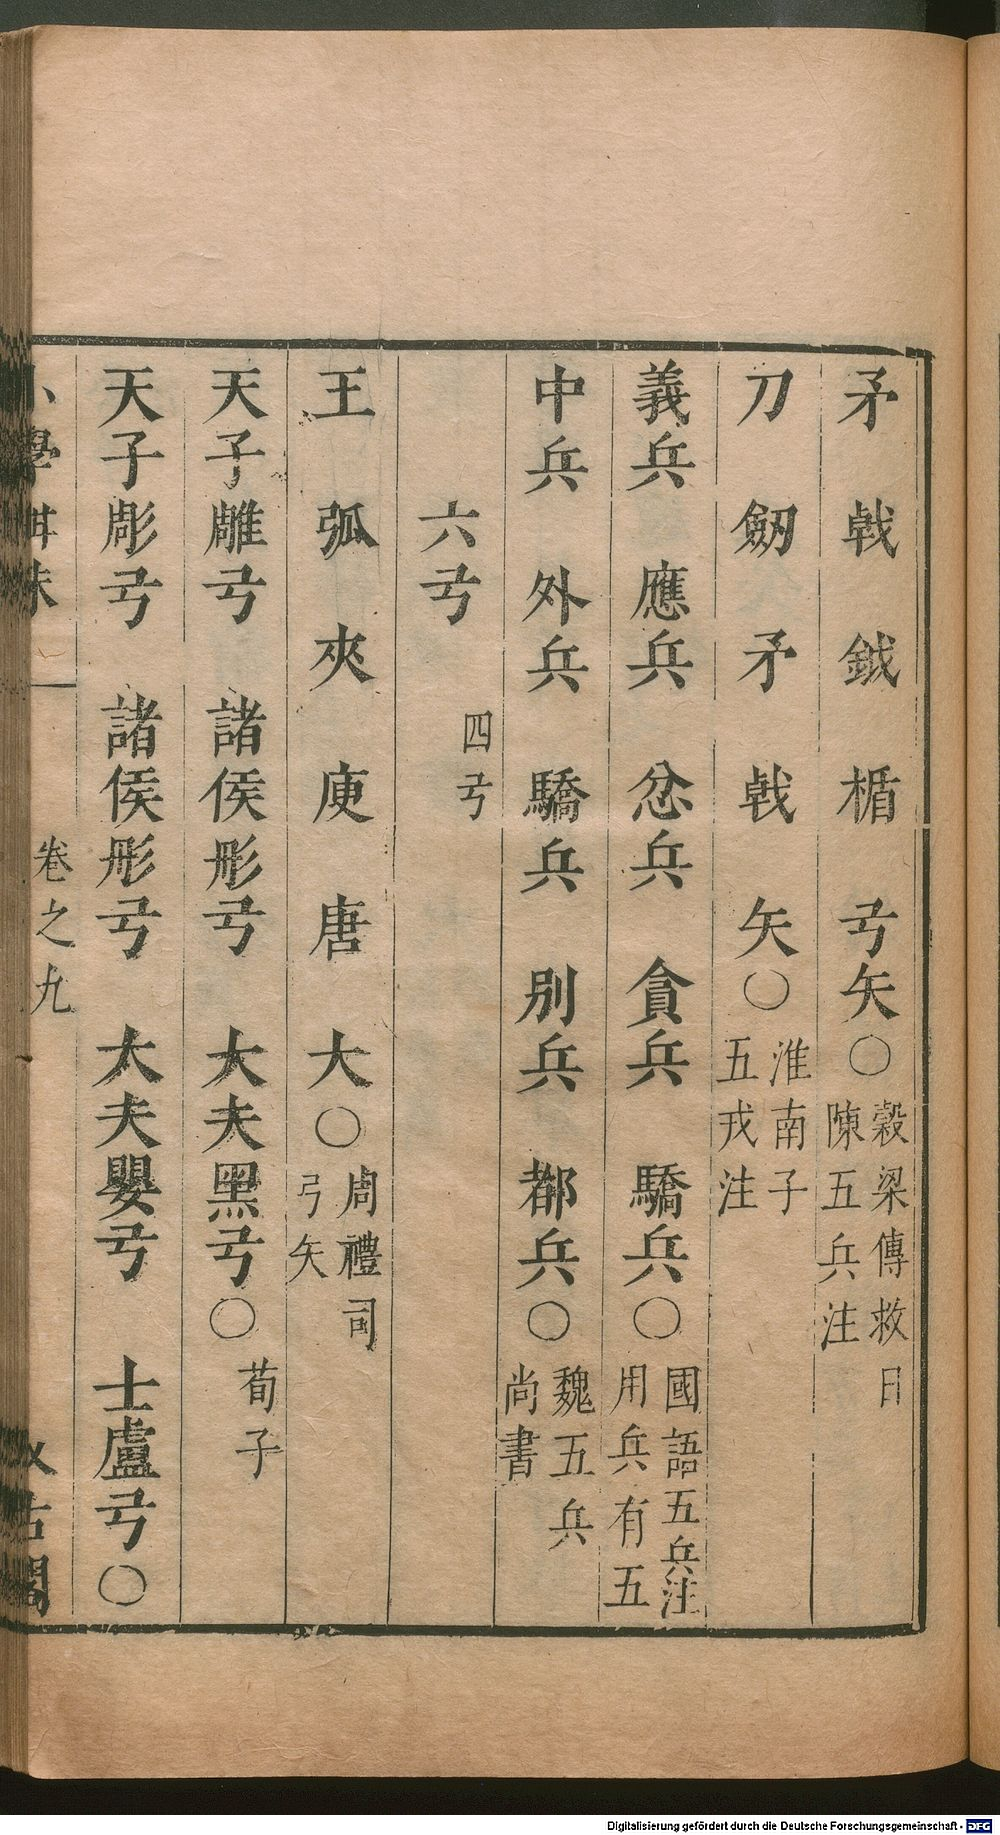 矛 戟 鉞 楯 弓矢○穀梁傳救日陳五兵注
刀 劒 矛 戟 矢○淮南子五戎注
義兵 應兵 忿兵 貪兵 驕兵○國語五兵注用兵有五
中兵 外兵 驕兵 別兵 都兵○魏五兵尚書
六弓 四弓
王 弧 夾 庾 唐 大○周禮司弓矢
天子雕弓 諸侯彤弓 大夫黑弓○荀子
天子彫弓 諸侯彤弓 大夫嬰弓 士盧弓○
小學紺珠 卷之九 汲古閣
Digitalisierung gefördert durch die Deutsche Forschungsgemeinschaft - DFG